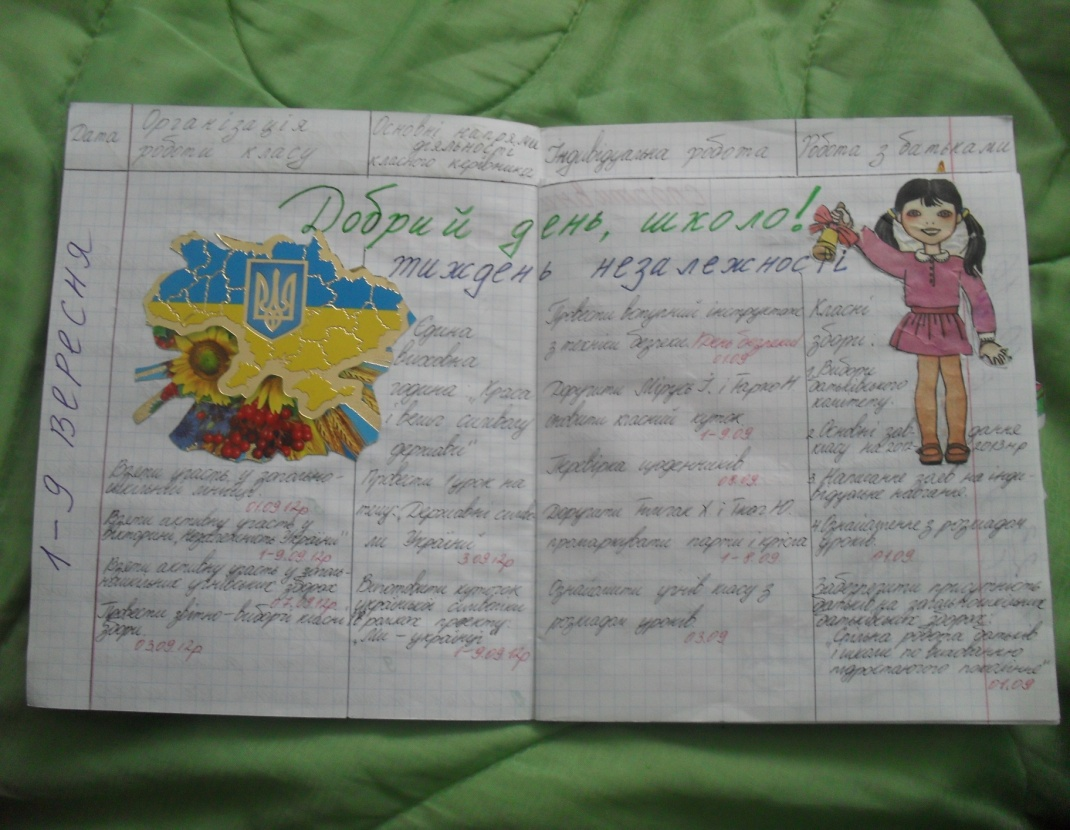 Дата
Організація
роботи класу
Основні напрями
діяльності
класного керівника
Індивідуальна робота
Робота з батьками
Добрий день, школо!
тиждень незалежності
1-9 вересня
Взяти участь у загально-
шкільній лінійці
01.09.12р
Взяти активну участь у
вікторині „Незалежність України"
1-9.09.12р
Взяти активну участь у загаль-
ношкільних учнівських зборах
Провести звітно-виборчі класні
збори.
03.09.12р
Єдина
виховна
година „Краса
і велич символу
держави"
Провести 1 урок на
тему: „Державні симво-
ли України"
3.09.12р
Виготовити куточок
української символіки
в рамках проекту:
„Ми - українці"
1-9.09.12р
Провести вступний інструктаж
з техніки безпеки.
01.09
Доручити і
оновити класний куток
1-9.09
Перевірка щоденників
03.09.
Доручити Х і Ю.
промаркувати парти і крісла
1-1.09
Ознайомити учнів класу з
розкладом уроків
03.09
Класні
збори.
1. Вибори
батьківського
комітету.
2. Основні зав-дання
класу на 2012-2013 н.р
3. Написання заяв на інди-
відуальне навчання.
4. Ознайомлення з розкладом
уроків.
01.09
Забезпечити присутність
батьків на загальношкільних
батьківських зборах:
„Спільна робота батьків
і школи по вихованню
підростаючого покоління"
01.09